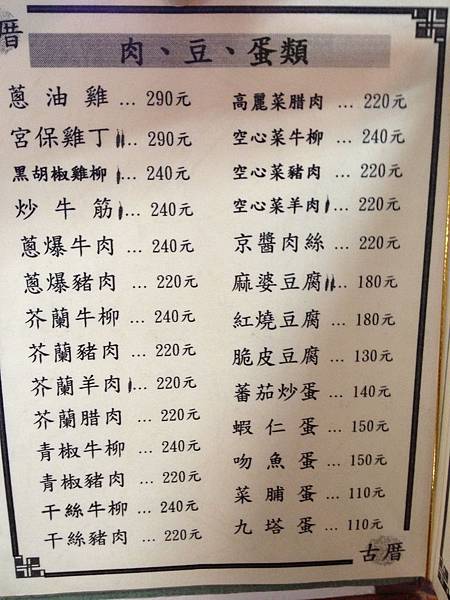 厝
肉、豆、蛋類
蔥油雞 ... 290元
宮保雞丁 ... 290元
黑胡椒雞柳 ... 240元
炒牛筋 ... 240元
蔥爆牛肉 ... 240元
蔥爆豬肉 ... 220元
芥蘭牛柳 ... 240元
芥蘭豬肉 ... 220元
芥蘭羊肉 ... 220元
芥蘭腊肉 ... 220元
青椒牛柳 ... 240元
青椒豬肉 ... 220元
干絲牛柳 ... 240元
干絲豬肉 ... 220元
高麗菜腊肉 ... 220元
空心菜牛柳 ... 240元
空心菜豬肉 ... 220元
空心菜羊肉 ... 220元
京醬肉絲 ... 220元
麻婆豆腐 ... 180元
紅燒豆腐 ... 180元
脆皮豆腐 ... 130元
蕃茄炒蛋 ... 140元
蝦仁蛋 ... 150元
吻魚蛋 ... 150元
菜脯蛋 ... 110元
九塔蛋 ... 110元
古厝